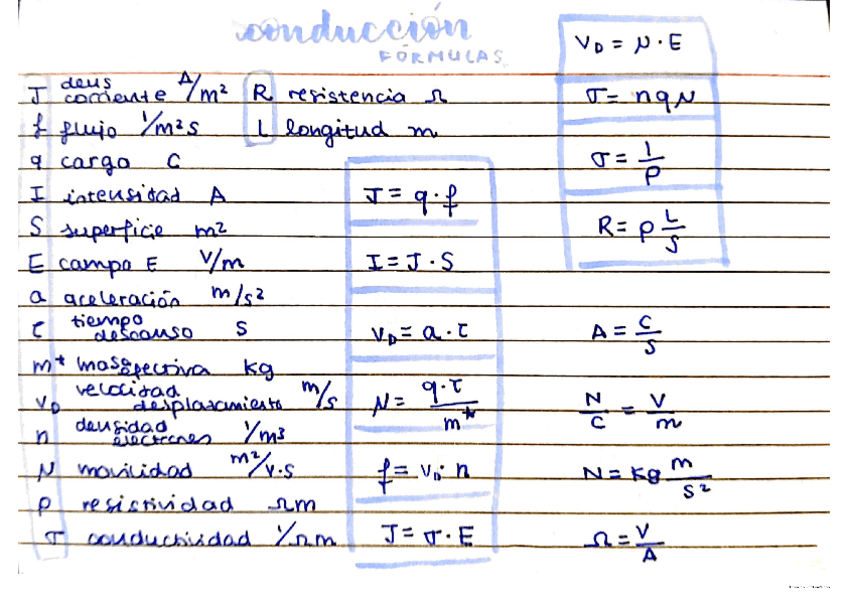 conducción
FÓRMULAS
J deus corriente A/m² R resistencia Ω
f flujo 1/m²s L longitud m
q carga C
I intensidad A
S superficie m²
E campo E V/m
a aceleración m/s²
τ tiempo descanso s
m* masa efectiva kg
v_D velocidad desplazamiento m/s
n densidad electrones 1/m³
μ movilidad m²/V·s
ρ resistividad Ωm
σ conductividad 1/Ωm
J = q · f
I = J · S
v_D = a · τ
μ = q·τ / m*
f = v_D · n
J = σ · E
v_D = μ · E
σ = nqμ
σ = 1/ρ
R = ρ L/S
A = C/s
N/C = V/m
N = kg m/s²
Ω = V/A